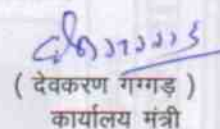 ( देवकरण गग्गड़ )
कार्यालय मंत्री